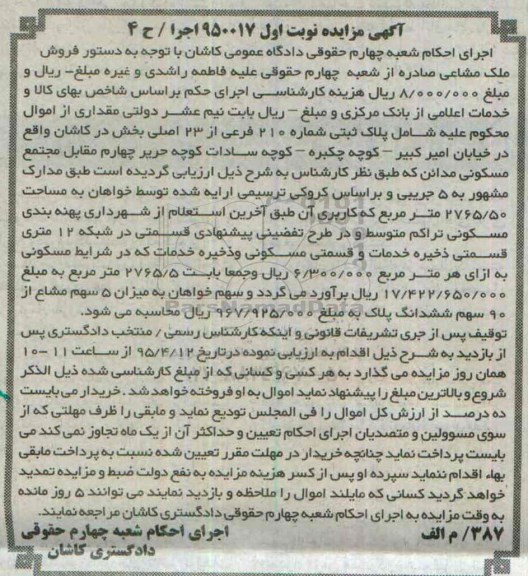 آگهی مزایده نوبت اول ۹۵۰۰۱۷ اجرا / ح ۴
اجرای احکام شعبه چهارم حقوقی دادگاه عمومی کاشان با توجه به دستور فروش
ملک مشاعی صادره از شعبه چهارم حقوقی علیه فاطمه راشدی و غیره مبلغ- ریال و
مبلغ ۸/۰۰۰/۰۰۰ ریال هزینه کارشناسی اجرای حکم براساس شاخص بهای کالا و
خدمات اعلامی از بانک مرکزی و مبلغ – ریال بابت نیم عشر دولتی مقداری از اموال
محکوم علیه شامل پلاک ثبتی شماره ۲۱۰ فرعی از ۲۳ اصلی بخش در کاشان واقع
در خیابان امیر کبیر – کوچه چکبره – کوچه سادات کوچه حریر چهارم مقابل مجتمع
مسکونی مدائن که طبق نظر کارشناس به شرح ذیل ارزیابی گردیده است طبق مدارک
مشهور به ۵ جریبی و براساس کروکی ترسیمی ارایه شده توسط خواهان به مساحت
۲۷۶۵/۵۰ متر مربع که کاربری آن طبق آخرین استعلام از شهرداری پهنه بندی
مسکونی تراکم متوسط و در طرح تفضینی پیشنهادی قسمتی در شبکه ۱۲ متری
قسمتی ذخیره خدمات و قسمتی مسکونی وذخیره خدمات که در شرایط مسکونی
به ازای هر متر مربع ۶/۳۰۰/۰۰۰ ریال وجمعا بابت ۲۷۶۵/۵ متر مربع به مبلغ
۱۷/۴۲۲/۶۵۰/۰۰۰ ریال برآورد می گردد و سهم خواهان به میزان ۵ سهم مشاع از
۹۰ سهم ششدانگ پلاک به مبلغ ۹۶۷/۹۲۵/۰۰۰ ریال محاسبه می شود.
توقیف پس از جری تشریفات قانونی و اینکه کارشناس رسمی / منتخب دادگستری پس
از بازدید به شرح ذیل اقدام به ارزیابی نموده درتاریخ ۹۵/۴/۱۲ از ساعت ۱۱ -۱۰
همان روز مزایده می گذارد به هر کسی و کسانی که از مبلغ کارشناسی شده ذیل الذکر
شروع و بالاترین مبلغ را پیشنهاد نماید اموال به او فروخته خواهد شد . خریدار می بایست
ده درصد از ارزش کل اموال را فی المجلس تودیع نماید و مابقی را ظرف مهلتی که از
سوی مسوولین و متصدیان اجرای احکام تعیین و حداکثر آن از یک ماه تجاوز نمی کند می
بایست پرداخت نماید چنانچه خریدار در مهلت مقرر تعیین شده نسبت به پرداخت مابقی
بهاء اقدام ننماید سپرده او پس از کسر هزینه مزایده به نفع دولت ضبط و مزایده تمدید
خواهد گردید کسانی که مایلند اموال را ملاحظه و بازدید نمایند می توانند ۵ روز مانده
به وقت مزایده به اجرای احکام شعبه چهارم حقوقی دادگستری کاشان مراجعه نمایند.
۳۸۷/ م الف
اجرای احکام شعبه چهارم حقوقی
دادگستری کاشان